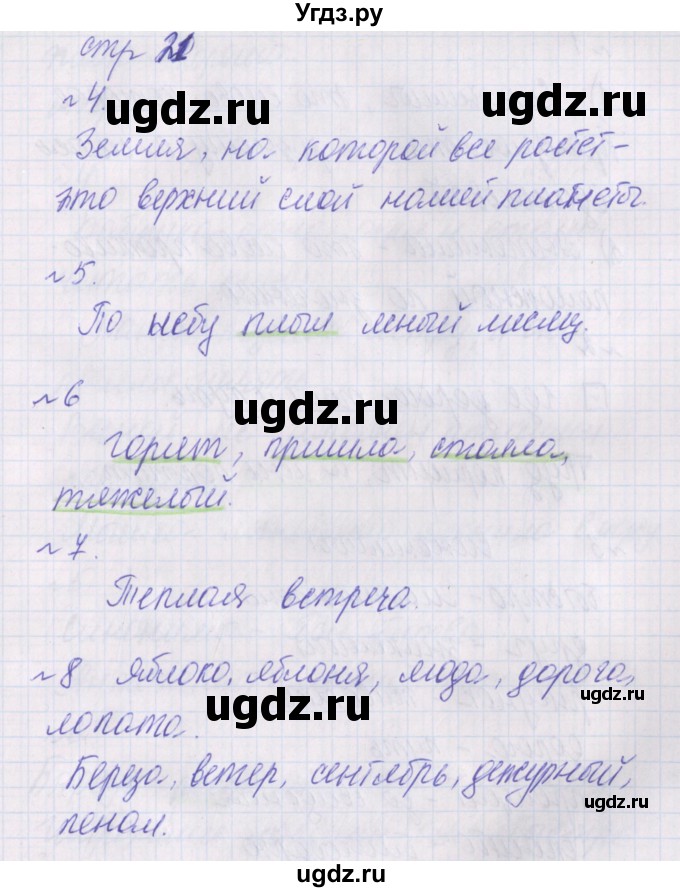 Угдз.ру
стр 21
ugdz.ru ugdz.ru
№4.
Земля, на которой все растет-
это верхний слой нашей планеты.
№5.
По небу плыл ясный месяц.
№6
ugdz.ru
горят, пришла, стояла,
тяжелый.
№7.
Теплая встреча.
№8 Яблоко, яблоня, мода, дорога,
ugdz.ru ugdz.ru
лопата.
Береза, ветер, сентябрь, дежурный,
ugdz.ru
пенал.
ugdz.ru